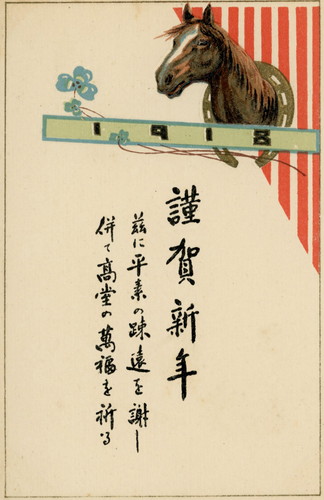 1918
謹賀新年
茲に平素の疎遠を謝し
併て高堂の萬福を祈る